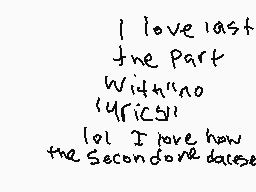 I love last
the part
with "no
lyrics"
lol I love how
the second one